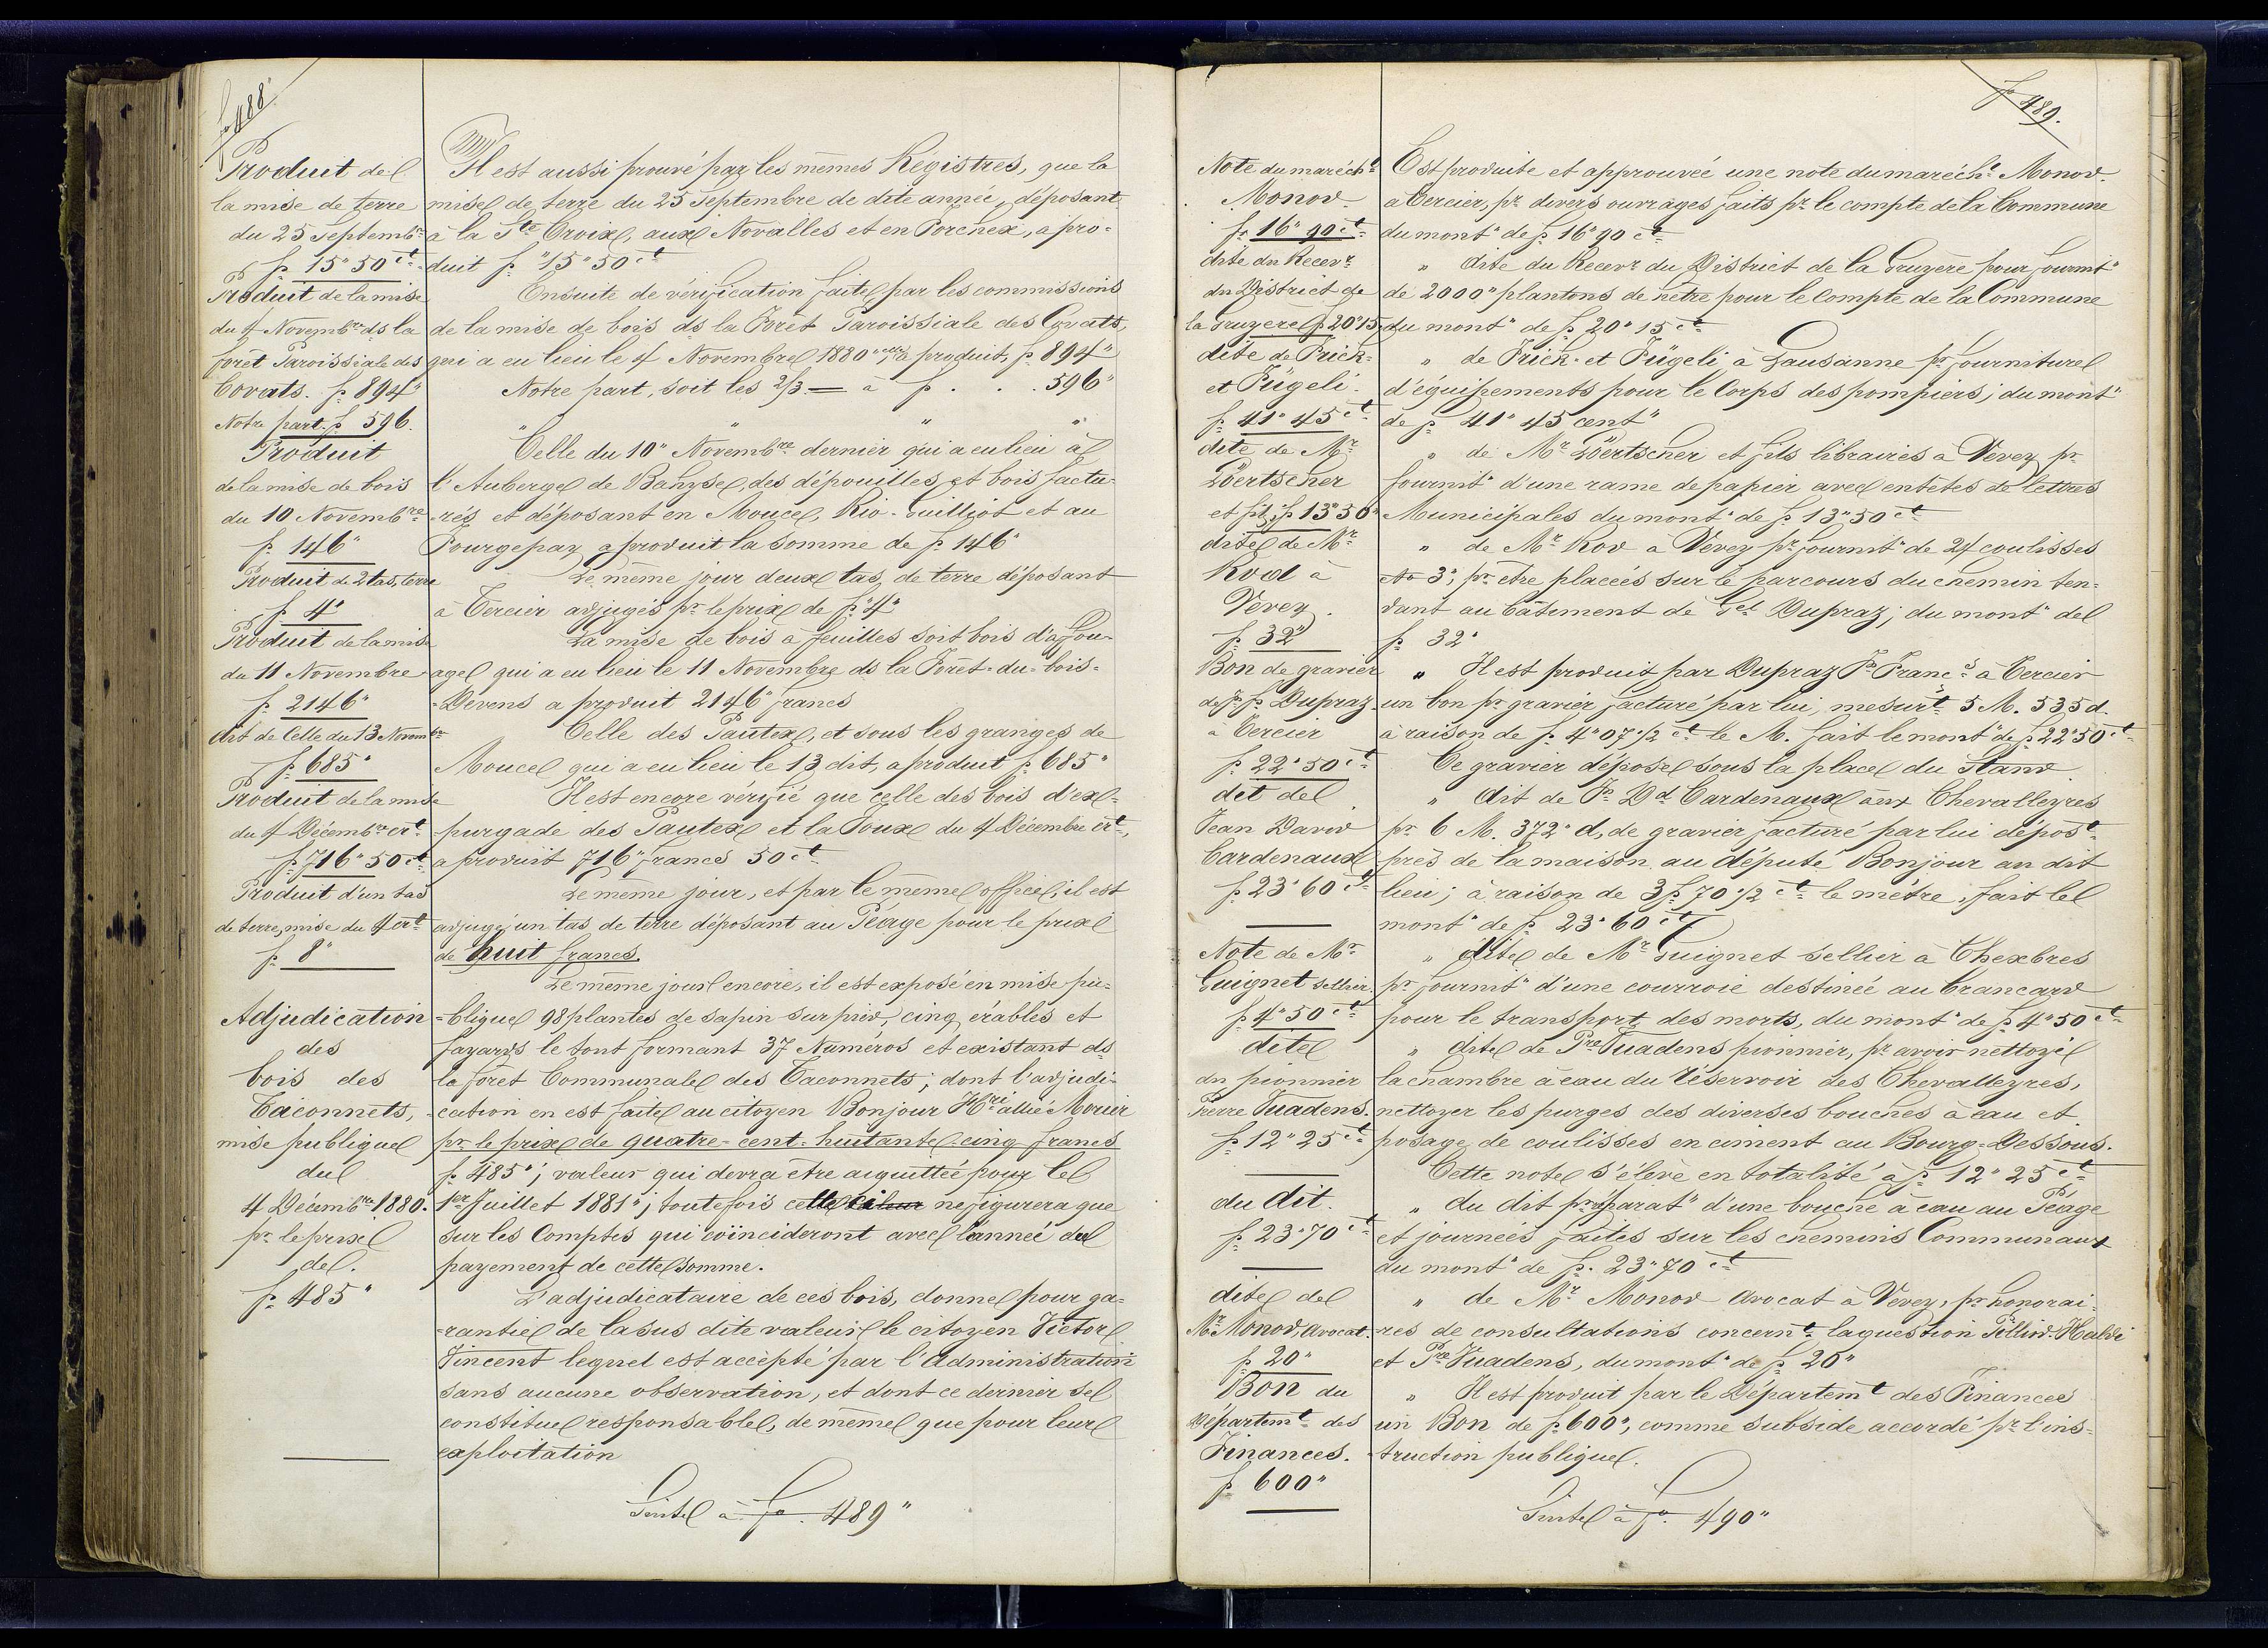 fo 488
Produit de
la mise de terre
du 25 Septembre
fr. 15" 50 ct
Produit de la mise
du 4 Novembre ds la
forêt Paroissiale des
Covats. fr. 894"
Notre part fr. 596.
Produit
de la mise de bois
du 10 Novembre
fr. 146"
Produit de 2 tas, terre
fr. 4"
Produit de la mise
du 11 Novembre
fr. 2146"
dit de Celle du 13 Novembre
fr. 685"
Produit de la mise
du 4 Décembre crt
fr. 716" 50 ct
Produit d'un tas
de terre, mise du 4 crt
fr. 8"
Adjudication
des
bois des
Taconnets,
mise publique
du
4 Décembre 1880.
pr le prix
de.
fr. 485"
Il est aussi prouvé par les mêmes Régistres, que la
mise de terre du 25 Septembre de dite année, déposant
à la Ste Croix, aux Novalles et en Porchex, a pro-
duit fr. "15" 50 ct
Ensuite de vérification faite, par les commissions
de la mise de bois ds la Forêt Paroissiale des Covats,
qui a eu lieu le 4 Novembre 1880", elle a produit, fr. 894"
Notre part, soit les 2/3 = a fr. . . 596"
" " " "
Celle du 10" Novembre dernier qui a eu lieu à
l'Auberge de Banyse, des dépouilles et bois factu-
-rés et déposant en Mouce, Rio-Guilliot et au
Fourgepaz a produit la somme de fr. 146"
Le même jour deux tas de terre déposant
à Tercier adjugés pr le prix de fr. "4"
La mise de bois à feuilles soit bois d'affou-
age qui a eu lieu le 11 Novembre ds la Forêt-du-bois-
-Devens a produit 2146" francs
Celle des Pautex, et sous les granges de
Mouce qui a eu lieu le 13 dit, a produit fr. 685"
Il est encore vérifié que celle des bois d'ex-
-purgade des Pautex et la Joux du 4 Décembre crt,
a produit 716" francs 50 ct
Le même jour, et par le même office, il est
adjugé un tas de terre déposant au Péage pour le prix
de huit francs.
Le même jour encore, il est exposé en mise pu-
-blique 98 plantes de sapin sur pied, cinq érables et
fayards le tout formant 37 Numéros et existant ds
la forêt Communale des Taconnets; dont l'adjudi-
-cation en est faite au citoyen Bonjour Hri allié Morier
pr le prix de quatre-cent-huitante cinq francs
fr. 485"; valeur qui devra être acquittée pour le
1er Juillet 1881"; toutefois cette valeur ne figurera que
sur les Comptes qui coïncideront avec l'année du
payement de cette somme.
L'adjudicataire de ces bois, donne pour ga-
-rantie de la sus dite valeur le citoyen Victor
Vincent lequel est accepté par l'Administration
sans aucune observation, et dont ce dernier se
constitue responsable, de même que pour leur
exploitation
Suite à fo. 489"
fo 489.
Note du maréchl
Monod
fr. 16" 90 ct
dite du Recevr
du District de
la Gruyère fr. 20" 15
dite de Frick
et Fügeli.
fr. 41" 45 ct
dite de Mr
Löertscher
et fils, fr. 13" 50"
dite de Mr
Rod à
Vevey.
fr. 32"
Bon de gravier
de Jn. Fs. Dupraz
à Tercier
fr. 22" 50 ct
dit de
Jean David
Cardenaux
fr. 23" 60 ct
Note de Mr
Guignet sellier
fr. 4" 50 ct
dite
du pionnier
Pierre Vuadens.
fr. 12" 25 ct
du dit.
fr. 23" 70 ct
dite de
Mr Monod, avocat.
fr. 20"
Bon du
Départemt des
Finances.
fr. 600"
Est produite et approuvée une note du maréchl Monod
à Tercier, pr divers ouvrages faits pr le compte de la Commune
du mont" de fr. 16" 90 ct
" dite du Recevr du District de la Gruyère pour fournit"
de 2000" plantons de hêtre pour le Compte de la Commune
du mont" de fr. 20" 15 ct
" de Frick et Fügeli à Lausanne pr fourniture
d'équipements pour le Corps des pompiers; du mont"
de fr. 41" 45 cent"
" de Mr Löertscher et fils libraires à Vevey pr
fournit" d'une rame de papier avec entêtes de lettres
Municipales du mont" de fr. 13" 50 ct
" de Mr Rod à Vevey pr fournit" de 24 coulisses
No 3", pr être placées sur le parcours du chemin ten-
dant au bâtiment de Gel Dupraz; du mont" de
fr. 32"
" Il est produit par Dupraz Jn Francs à Tercier
un bon pr gravier facturé par lui, mesurt 5 M. 535 d.
à raison de fr. 4" 07 1/2 ct le M. fait le mont" de fr. 22" 50 ct
Ce gravier déposé sous la place du Stand
" dit de Jn Dd Cardenaux aux Chevalleyres
pr 6 M. 372" d, de gravier facturé par lui dépost
près de la maison au député Bonjour au dit
lieu; à raison de 3 fr. 70 1/2 ct le mètre, fait le
mont" de fr. 23" 60 ct
" dite de Mr Guignet sellier à Chexbres
pr fournit" d'une courroie destinée au brancard
pour le transport des morts, du mont" de fr. 4" 50 ct
" dite de Pre Vuadens pionnier, pr avoir nettoyé
la chambre à eau du Réservoir des Chevalleyres,
nettoyer les purges des diverses bouches à eau et
posage de coulisses en ciment au Bourg-Dessous.
Cette note s'élève en totalité à fr. 12" 25 ct
" du dit pr réparat" d'une bouche à eau au Péage
et journées faites sur les chemins Communaux
du mont" de fr. 23" 70 ct
" de Mr Monod avocat à Vevey, pr honorai-
-res de consultations concernt la question Pillivd-Haldi
et Pre Vuadens, du mont" de fr. 20"
" Il est produit par le Départemt des Finances
un Bon de fr. 600", comme subside accordé pr l'ins-
-truction publique.
Suite à fo. 490"